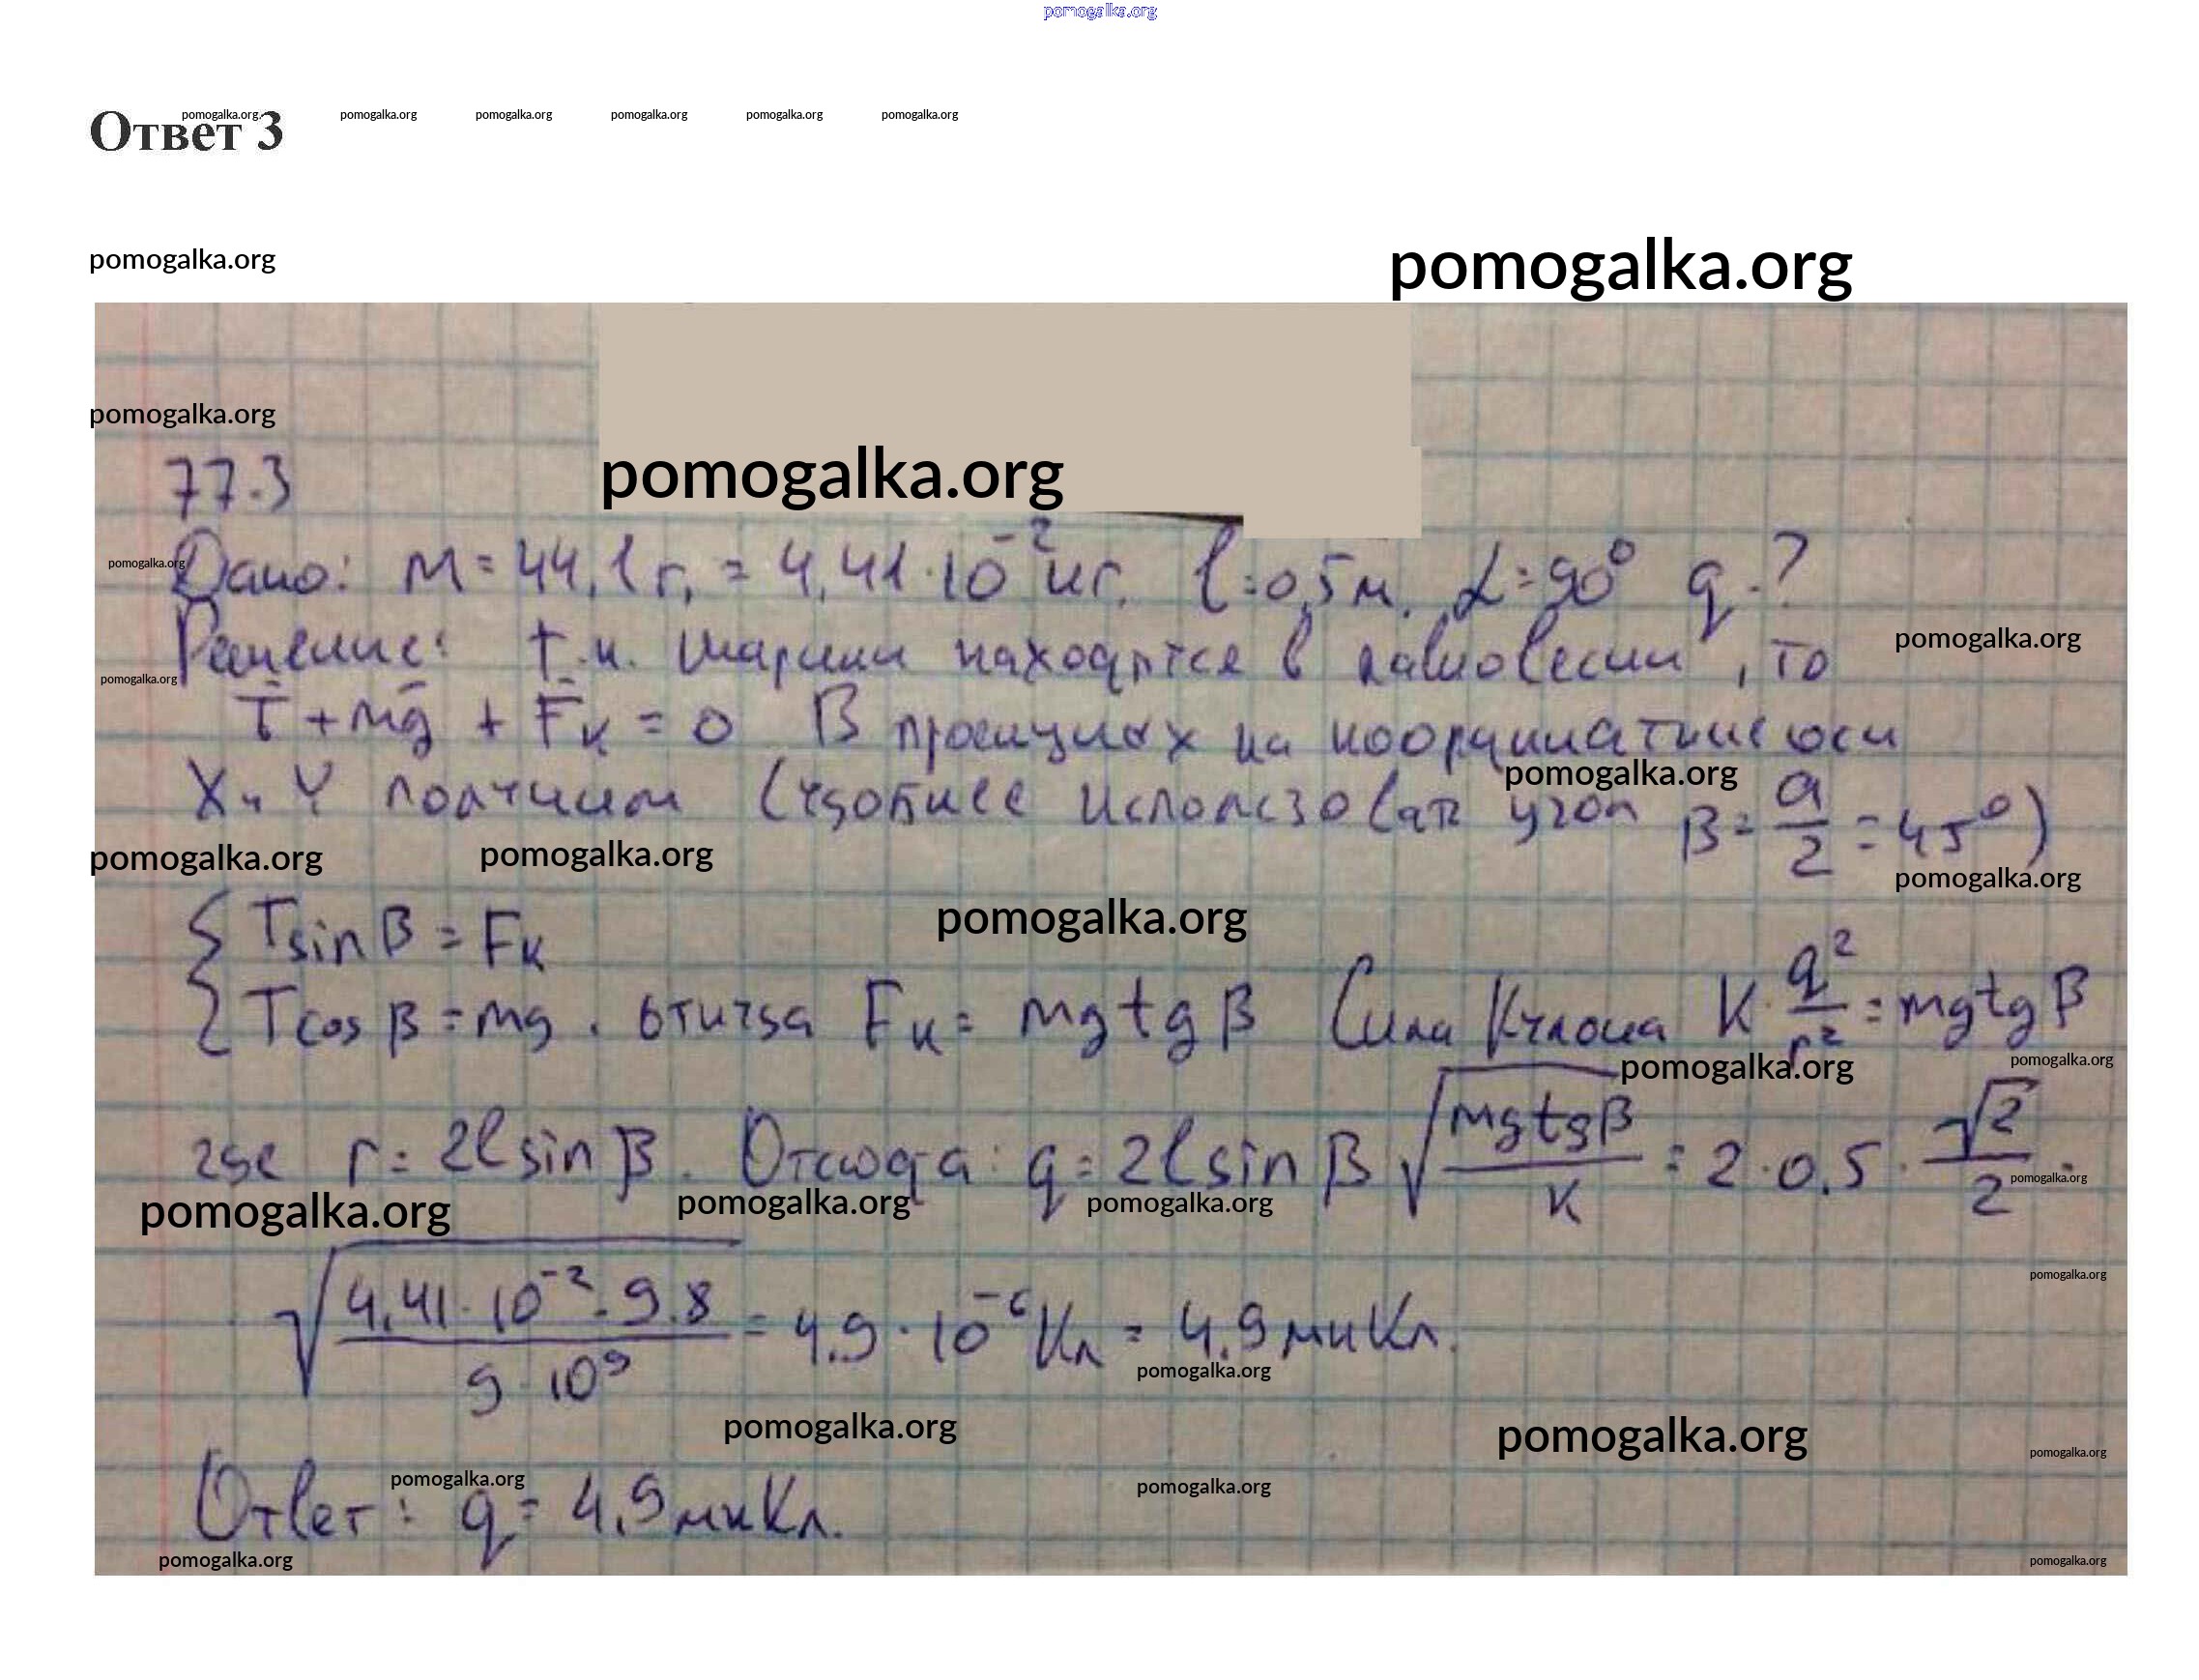 pomogalka.org
Ответ 3
pomogalka.org pomogalka.org pomogalka.org pomogalka.org pomogalka.org pomogalka.org
pomogalka.org pomogalka.org
pomogalka.org
77.3 pomogalka.org
pomogalka.org
Дано: m = 44,1 г, = 4,41 · 10⁻² кг. l = 0,5 м. α = 90° q - ?
Решение: т.к. шарики находятся в равновесии, то
pomogalka.org
pomogalka.org
T̄ + mḡ + F̄к = 0 В проекциях на координатные оси
pomogalka.org
X и Y получим (удобнее использовать угол β = a/2 = 45°)
pomogalka.org pomogalka.org pomogalka.org
{ T sin β = Fк
pomogalka.org
{ T cos β = mg. откуда Fк = mg tg β Сила Кулона K · q²/r² = mg tg β
pomogalka.org pomogalka.org
где r = 2l sin β. Отсюда: q = 2l sin β √(mg tg β / K) = 2 · 0,5 · √2/2 ·
pomogalka.org
pomogalka.org pomogalka.org pomogalka.org
pomogalka.org
√(4,41 · 10⁻² · 9.8 / 9 · 10⁹) = 4.9 · 10⁻⁶ Кл = 4,9 мкКл.
pomogalka.org
pomogalka.org pomogalka.org pomogalka.org
pomogalka.org pomogalka.org
Ответ: q = 4,9 мкКл.
pomogalka.org pomogalka.org